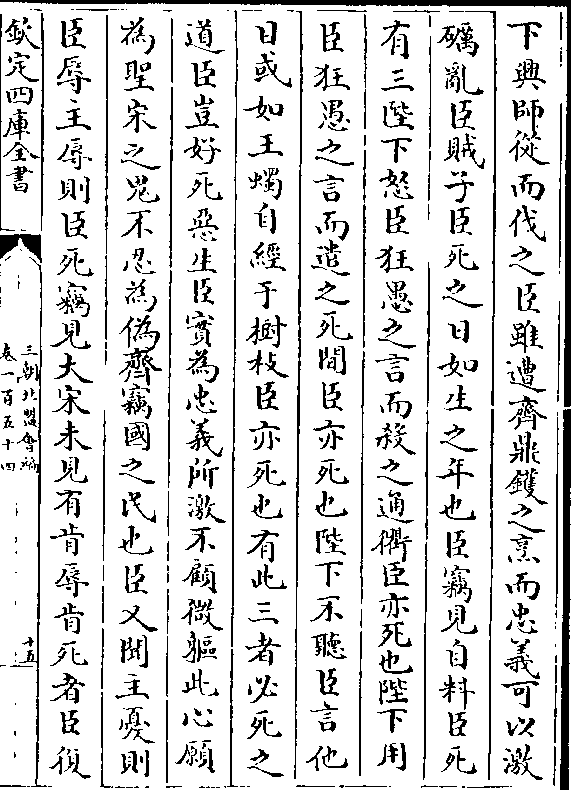 下興師從而伐之臣雖遭齊鼎鑊之烹而忠義可以激
礪亂臣賊子臣死之日如生之年也臣竊見自料臣死
有三陛下怒臣狂愚之言而殺之通衢臣亦死也陛下用
臣狂愚之言而遣之死間臣亦死也陛下不聽臣言他
日或如王燭自經于樹枝臣亦死也有此三者必死之
道臣豈好死惡生臣實為忠義所激不顧微軀此心願
為聖宋之鬼不忍為偽齊竊國之民也臣又聞主憂則
臣辱主辱則臣死竊見大宋未見有肯辱肯死者臣復
欽定四庫全書
三朝北盟會編
卷一百五十四
十五